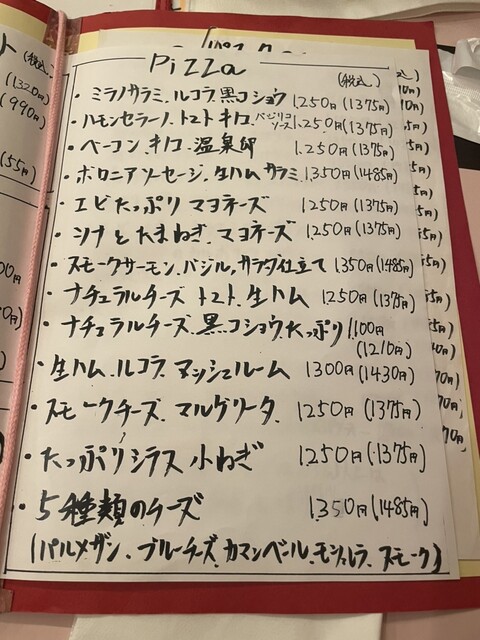 PiZZa (税込)
・ミラノサラミ、ルコラ、黒コショウ 1.250円(1375円)
・ハモンセラーノ、トマト キノコ、バジリコソース 1.250円(1375円)
・ベーコン キノコ 温泉卵 1.250円(1375円)
・ボロニアソーセージ、生ハム サラミ 1.350円(1485円)
・エビたっぷり マヨネーズ 1250円(1375円)
・シナとたまねぎ、マヨネーズ 1.250円(1375円)
・スモークサーモン、バジル、サラダ仕立て 1350円(1485円)
・ナチュラルチーズ トマト、生ハム 1250円(1375円)
・ナチュラルチーズ、黒コショウ、たっぷり 1.100円
(1210円)
・生ハム、ルコラ、マッシュルーム 1300円(1430円)
・スモークチーズ、マルゲリータ、 1250円(1375円)
・たっぷりシラス 小ねぎ 1250円(1375円)
・5種類のチーズ 1.350円(1485円)
(パルメザン、ブルーチーズ、カマンベール、モッツァレラ、スモーク)
(税込)
(1320円)
(990円)
(55円)